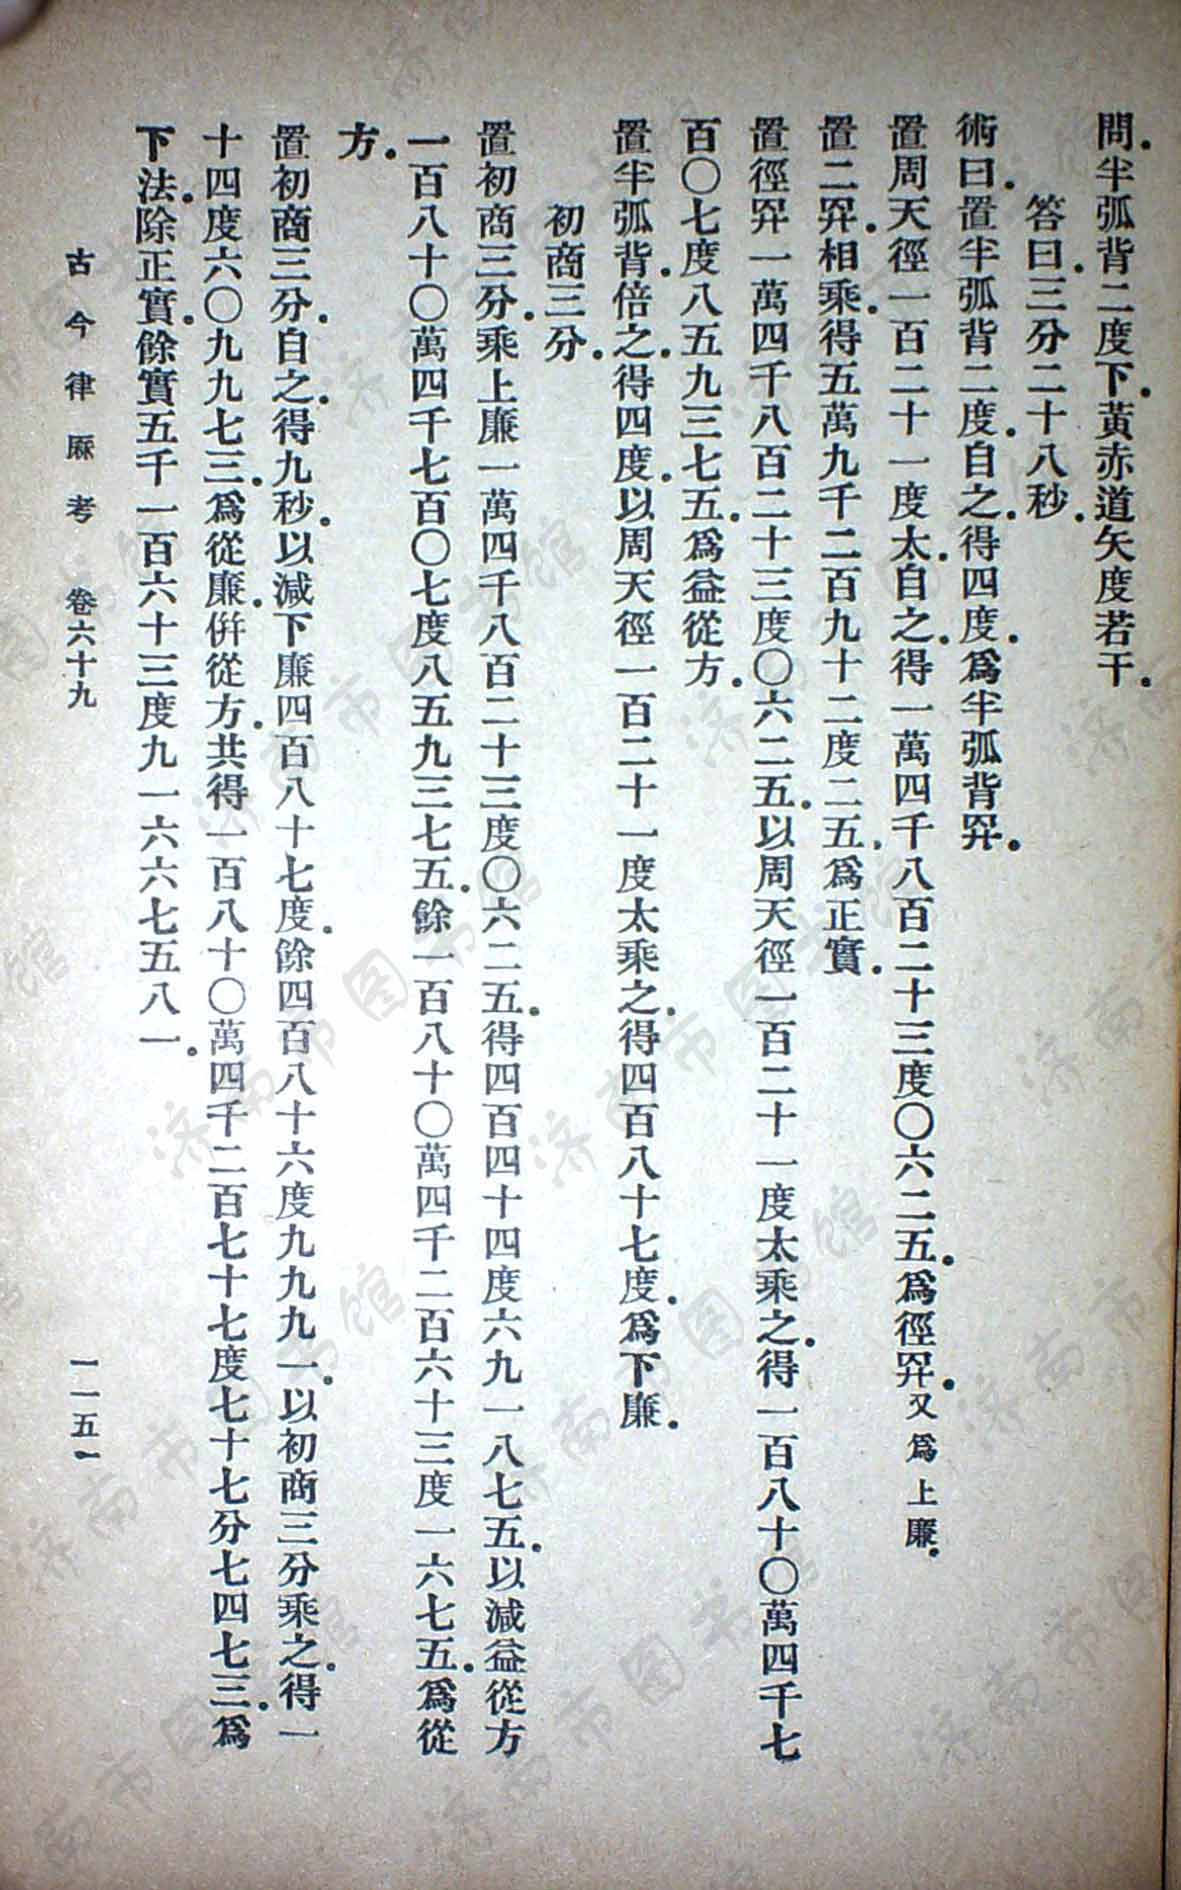 問半弧背二度下黃赤道矢度若干
答曰三分二十八秒
術曰置半弧背二度自之得四度爲半弧背𠔏
置周天徑一百二十一度太自之得一萬四千八百二十三度〇六二五爲徑𠔏又爲上廉
置二𠔏相乘得五萬九千二百九十二度二五爲正實
置徑𠔏一萬四千八百二十三度〇六二五以周天徑一百二十一度太乘之得一百八十〇萬四千七
百〇七度八五九三七五爲益從方
置半弧背倍之得四度以周天徑一百二十一度太乘之得四百八十七度爲下廉
初商三分
置初商三分乘上廉一萬四千八百二十三度〇六二五得四百四十四度六九一八七五以減益從方
一百八十〇萬四千七百〇七度八五九三七五餘一百八十〇萬四千二百六十三度一六七五爲從
方
置初商三分自之得九秒以減下廉四百八十七度餘四百八十六度九九九一以初商三分乘之得一
十四度六〇九九七三爲從廉倂從方共得一百八十〇萬四千二百七十七度七十七分七四七三爲
下法除正實餘實五千一百六十三度九一六六七五八一
古今律厤考 卷六十九 一一五一
济南市图书馆